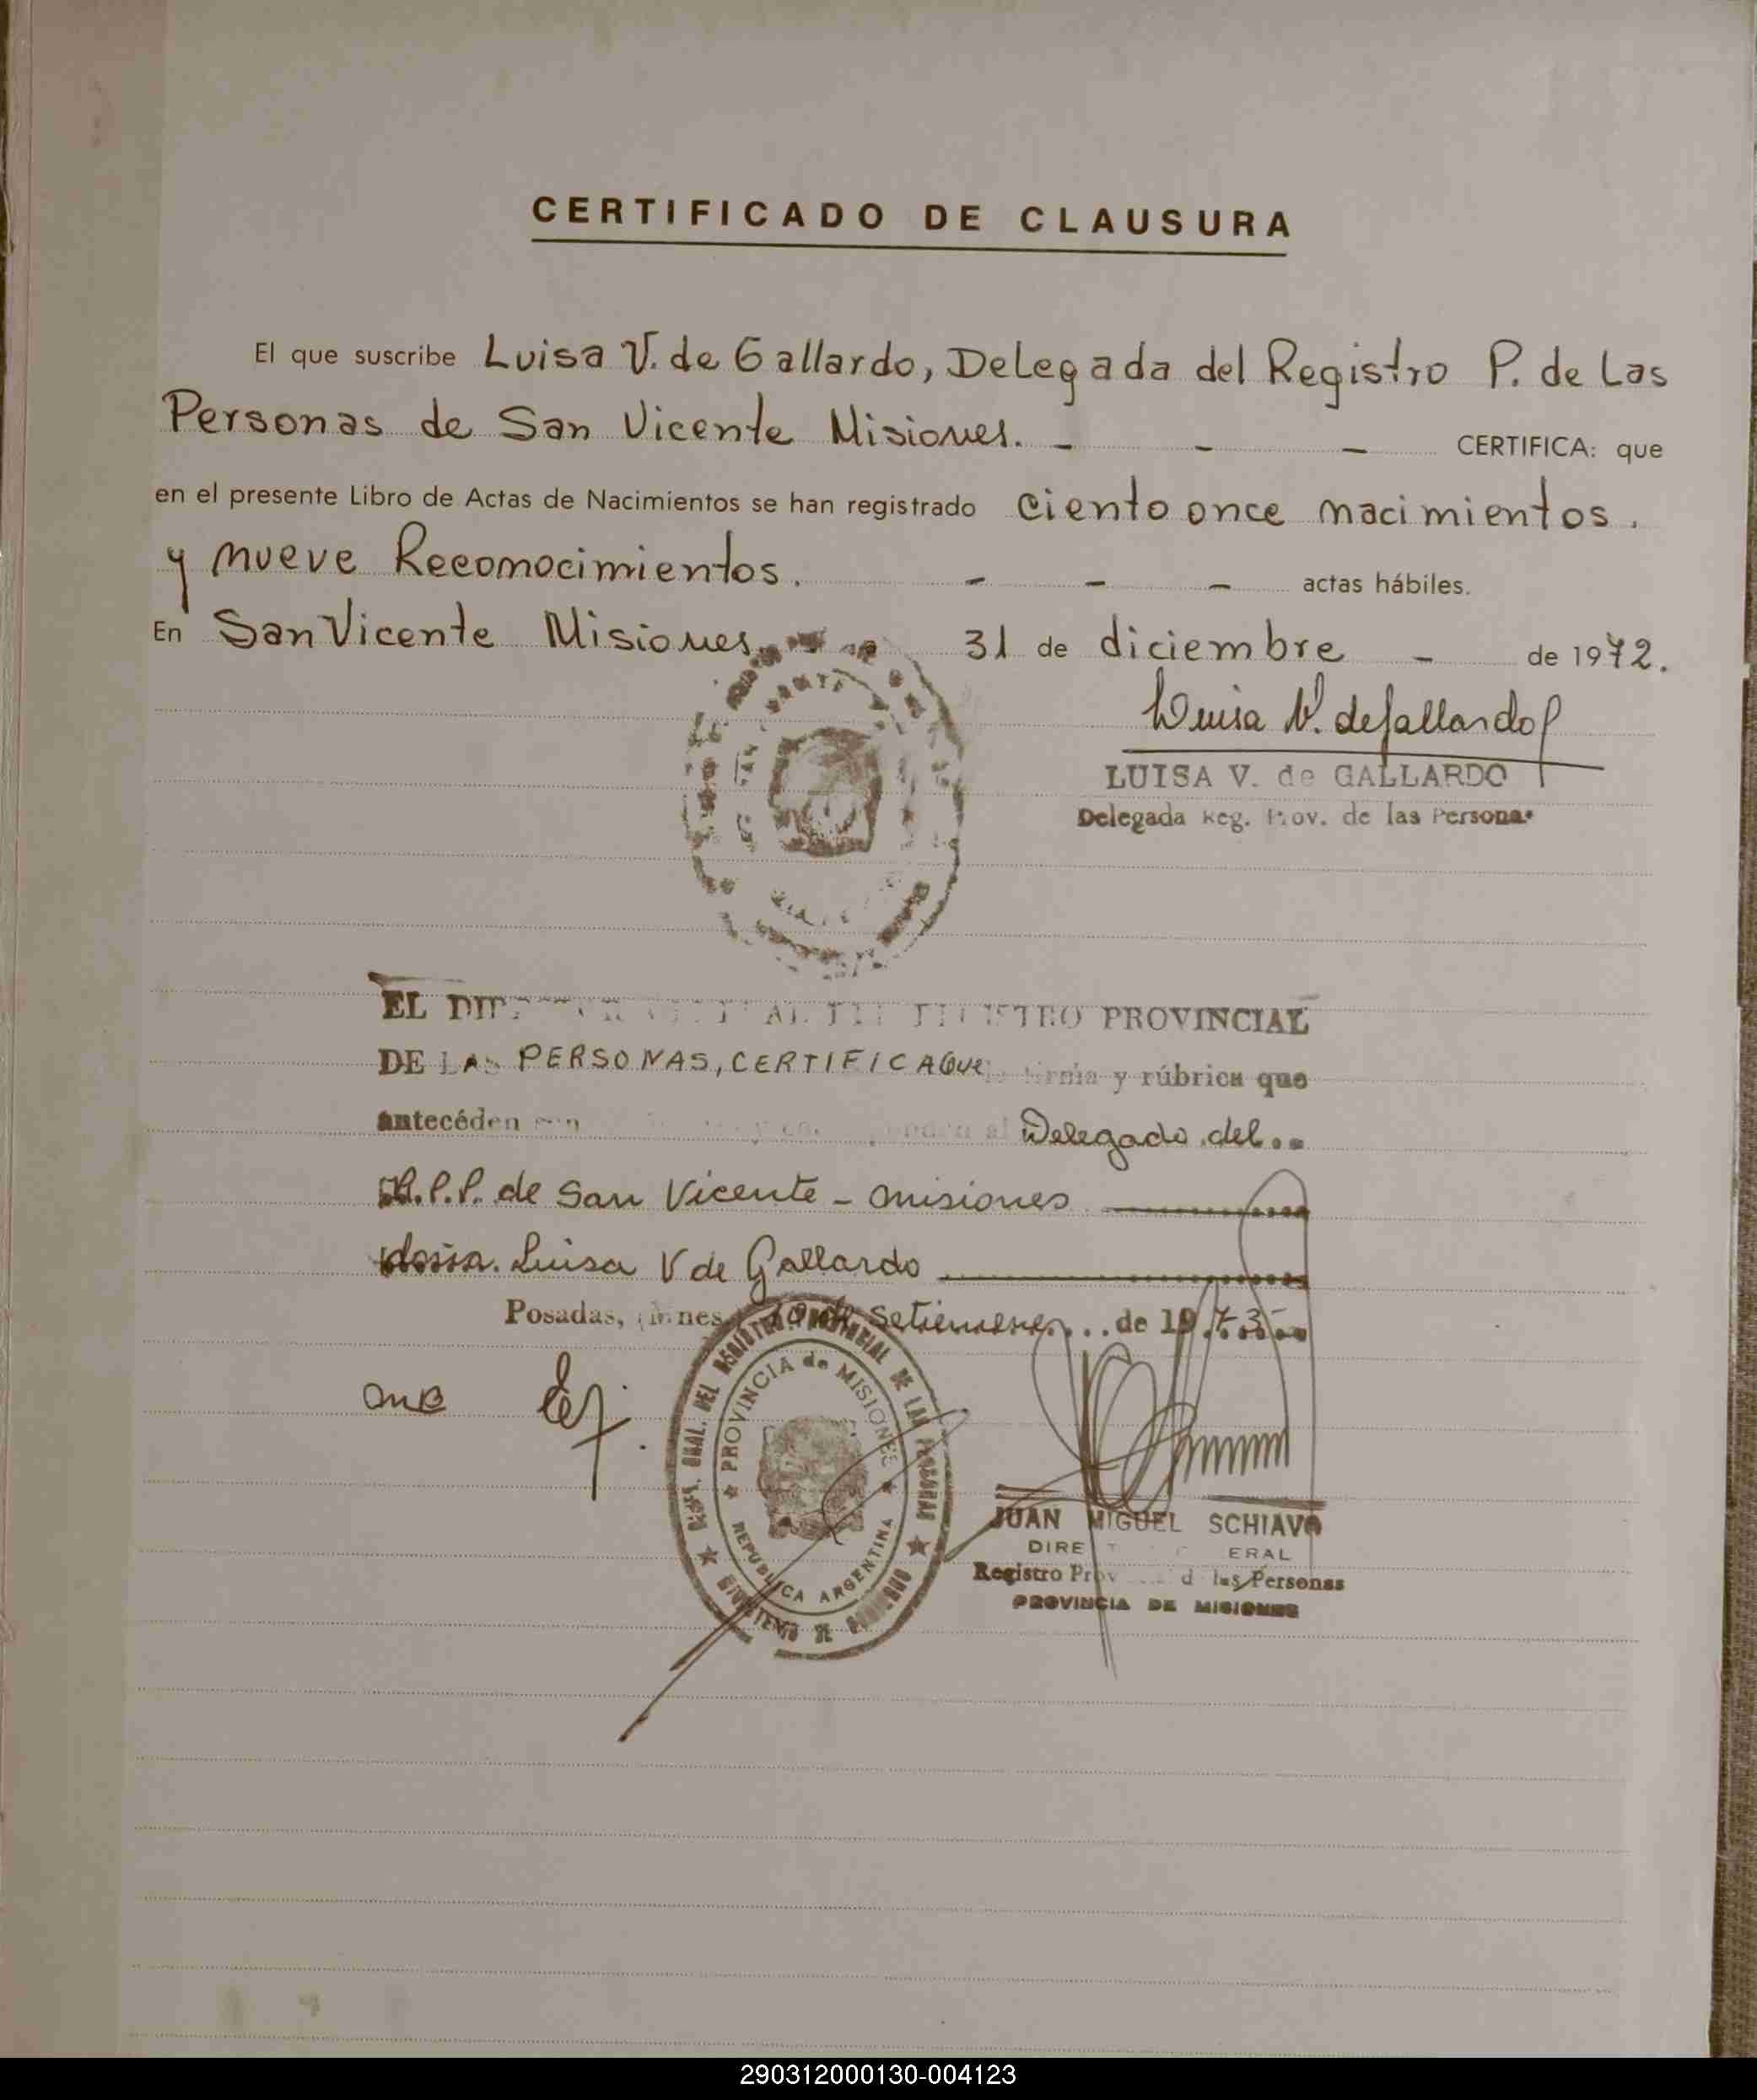 CERTIFICADO DE CLAUSURA
El que suscribe Luisa V. de Gallardo, Delegada del Registro P. de Las
Personas de San Vicente Misiones. - - - CERTIFICA: que
en el presente Libro de Actas de Nacimientos se han registrado ciento once nacimientos.
y nueve Reconocimientos. - - - actas hábiles.
En San Vicente Misiones 31 de diciembre - de 1972.
Luisa V. de Gallardo
LUISA V. de GALLARDO
Delegada Reg. Prov. de las Personas
EL PROVINCIAL
DE LAS PERSONAS, CERTIFICA QUE firma y rúbrica que
antecéden al Delegado del..
R.P.P. de San Vicente - misiones
Luisa V de Gallardo
Posadas, Setiembre... de 1973
DEL REGISTRO PROVINCIAL DE LAS PERSONAS
PROVINCIA de MISIONES
REPUBLICA ARGENTINA
JUAN MIGUEL SCHIAVO
DIRE ERAL
Registro Prov d las Personas
PROVINCIA DE MISIONES
290312000130-004123